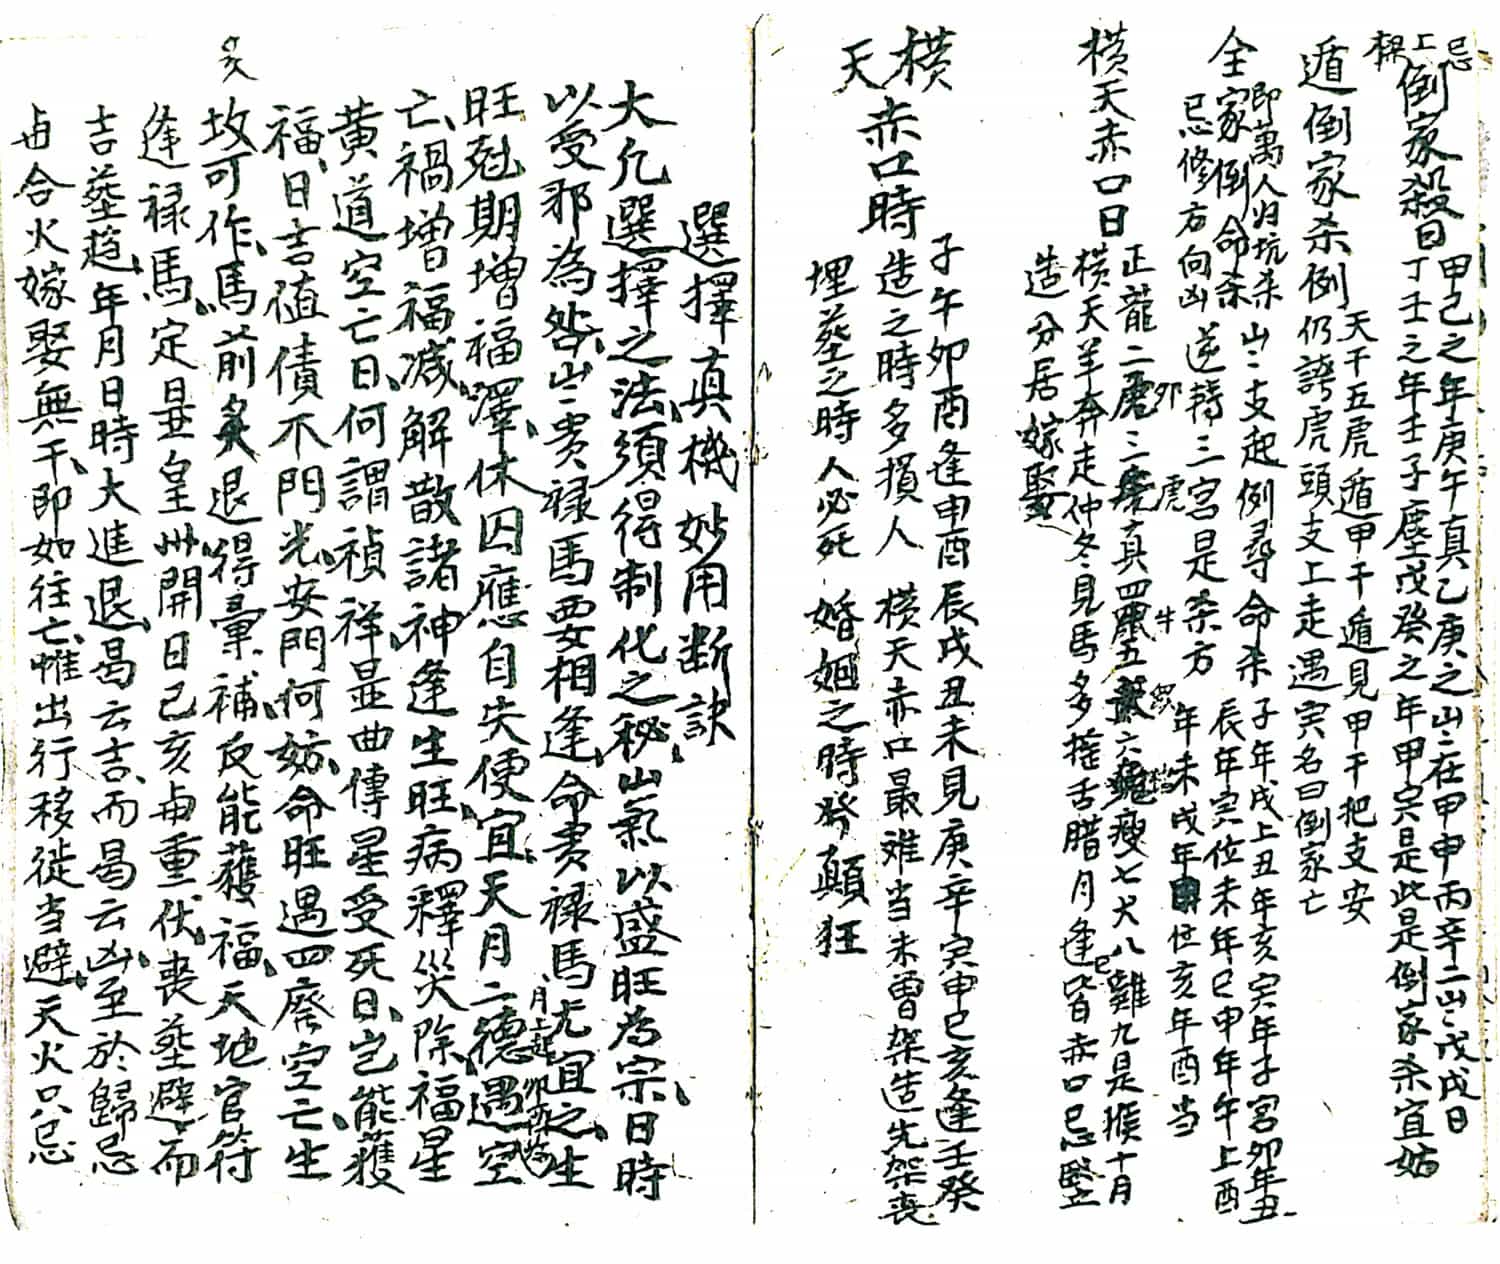 忌上樑
倒家殺日
甲己之年庚午真乙庚之山在甲申丙辛二山戊戌日
丁壬之年壬子塵戊癸之年甲寅是此是倒家杀宜妨
遁倒家杀倒
天干五虎遁甲干遁見甲干把支安
仍誇虎頭支上走遇寅名曰倒家亡
即萬人归坑杀
全家倒命杀
忌修方向凶
山山支起例尋命杀
逆轉三宮是杀方
子年戌上丑年亥寅年子宮卯年丑
辰年寅位未年巳申年午上酉
年未戌年申位亥年酉当
横天赤口日
正龍二虎三真四鼠五六龜七犬八雞九是猴十月
横天羊奔走仲冬見馬多搖舌腊月逢皆赤口忌豎
造分居嫁娶
横天赤口時
子午卯酉逢申酉辰戌丑未見庚辛寅申巳亥逢壬癸
造之時多損人 横天赤口最难当未曾架造先架丧
埋塟之時人必死 婚姻之時發顛狂
選擇真機妙用断訣
大凢選擇之法須得制化之秘山氣以盛旺為宗日時
以受邪為咎山山贵禄馬要相逢命贵禄馬尤宜之生
旺尅期增福澤休囚應自失便宜天月二德遇空
月上起
亡禍增福减解散諸神逢生旺病釋災除福星
黄道空亡日何謂禎祥显曲傳星受死日豈能獲
福日吉值债不門光安門何妨命旺遇四廢空亡生
坟可作馬前炙退得稟補反能獲福天地官符
亥
逢禄馬定显皇州開日己亥重伏丧塟避而
吉塟趋年月日時大進退曷云吉而曷云凶至於歸忌
合火嫁娶無干即如往亡惟出行移徙当避天火只忌